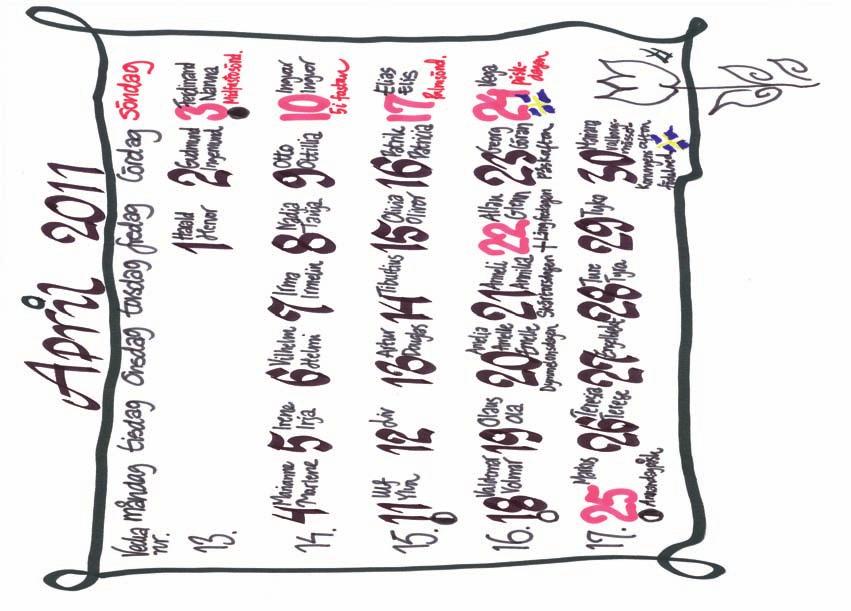 April 2011
Vecka nr. måndag tisdag onsdag torsdag fredag lördag söndag
13.
1 Harald Hervor
2 Gudmund Ingemund
3 Ferdinand Nanna
Midfastosönd.
14.
4 Marianne Marlene
5 Irene Irja
6 Vilhelm Helmi
7 Irma Irmelin
8 Nadja Tanja
9 Otto Ottilia
10 Ingvar Ingvor
5 i fastan
15.
11 Ulf Ylva
12 Liv
13 Artur Douglas
14 Tiburtius
15 Olivia Oliver
16 Patrik Patricia
17 Elias Elis
Palmsönd.
16.
18 Valdemar Volmar
19 Olaus Ola
20 Amelia Amelie Emelie
Dymmelonsdagen
21 Anneli Annika
Skärtorsdagen
22 Allan Glenn
+ Långfredagen
23 Georg Göran
Påskafton
24 Vega
Påskdagen
17.
25 Markus
Annandag påsk
26 Teresia Terese
27 Engelbrekt
28 Ture Tyra
29 Tyko
30 Mariana
Valborgsmässoafton
Konungens
födelsedag